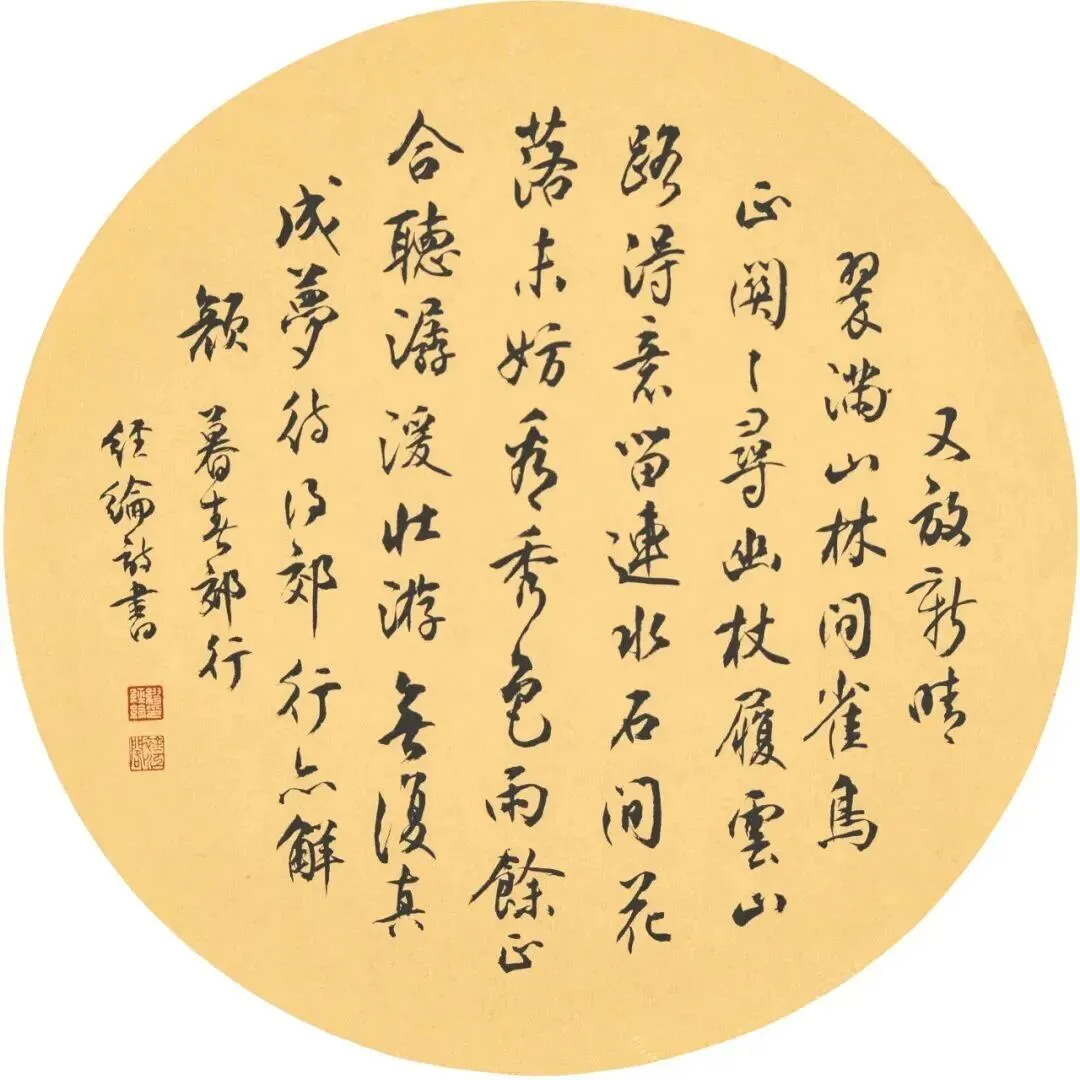 又放新晴
翠滿山林間雀鳥
正關〻尋幽杖履雲山
路得意留連水石間花
落未妨看秀色雨餘正
合聽潺湲壯游無復真
成夢待得郊行亦解
顏 暮春郊行
經綸詩書